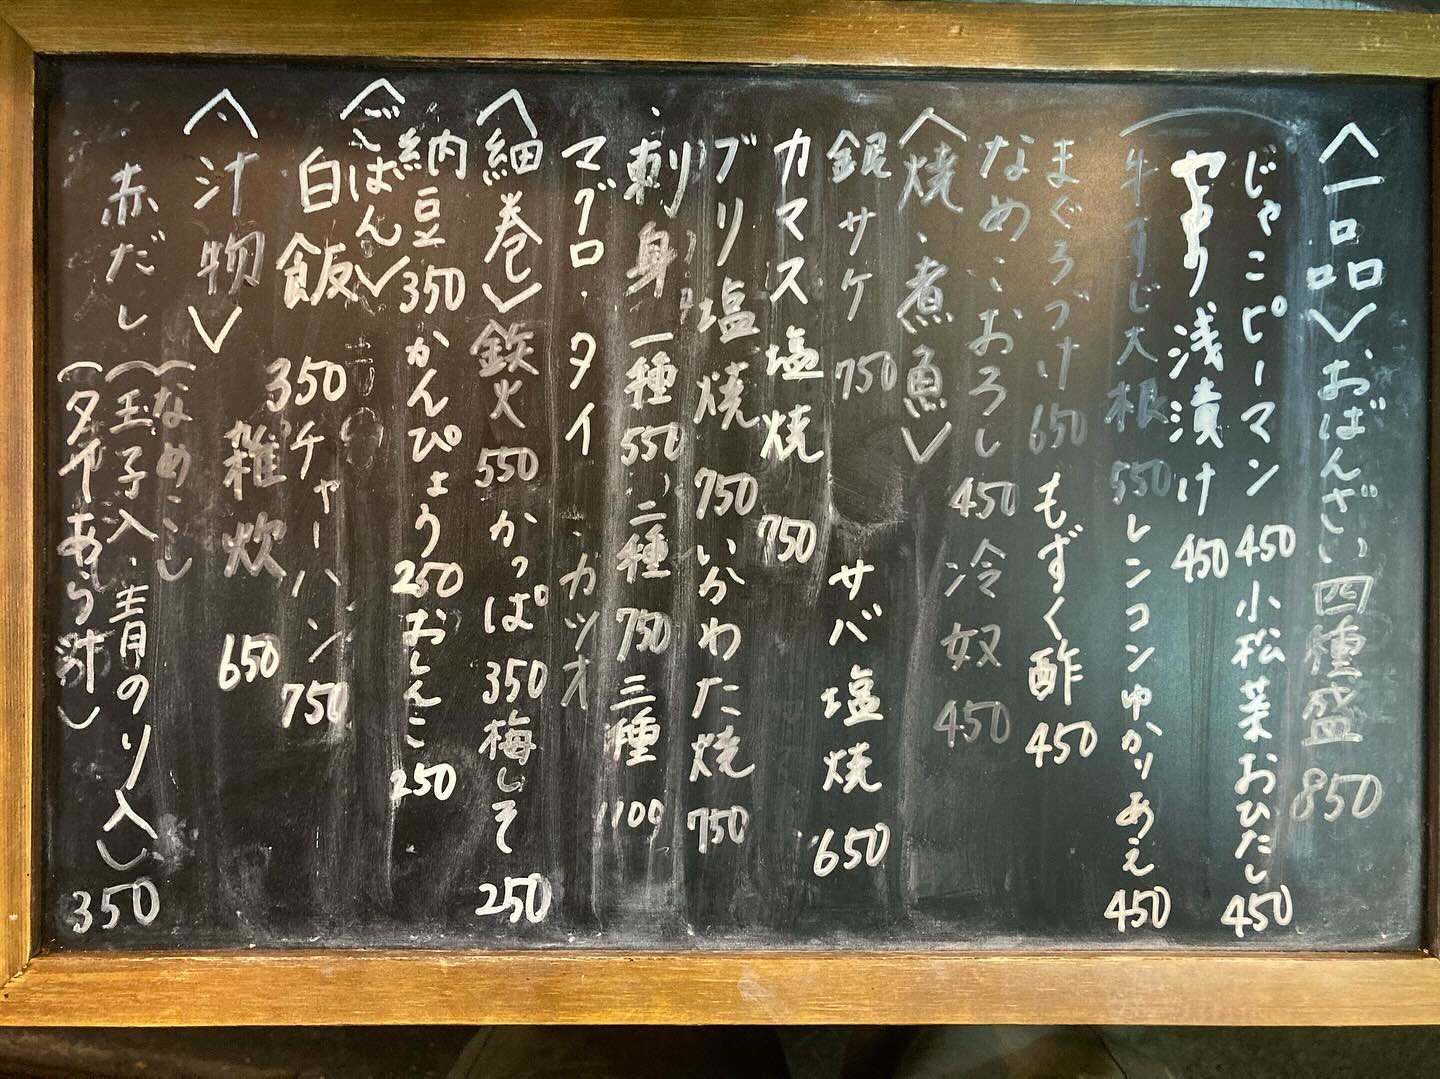 〈一品〉おばんざい四種盛 850
じゃこピーマン 450 小松菜おひたし 450
浅漬け 450
牛すじ大根 550 レンコンゆかりあえ 450
まぐろづけ 650 もずく酢 450
なめこおろし 450 冷奴 450
〈焼・煮魚〉
銀サケ 750 サバ塩焼 650
カマス塩焼 750
ブリ塩焼 750 いかわた焼 750
刺身 一種 550 二種 750 三種 1100
マグロ・タイ・カツオ
〈細巻〉鉄火 550 かっぱ 350 梅しそ 250
納豆 350 かんぴょう 250 おしんこ 250
〈ごはん〉
白飯 350 チャーハン 750
〈汁物〉 雑炊 650
赤だし (なめこし
(玉子入・青のり入)
(タイあら汁) 350